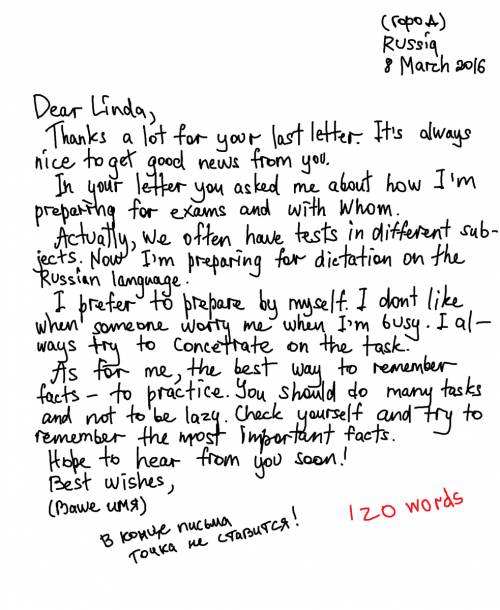 (город)
Russia
8 March 2016
Dear Linda,
Thanks a lot for your last letter. It's always
nice to get good news from you.
In your letter you asked me about how I'm
preparing for exams and with whom.
Actually, we often have tests in different sub-
jects. Now I'm preparing for dictation on the
Russian language.
I prefer to prepare by myself. I dont like
when someone worry me when I'm busy. I al-
ways try to concetrate on the task.
As for me, the best way to remember
facts - to practice. You should do many tasks
and not to be lazy. Check yourself and try to
remember the most important facts.
Hope to hear from you soon!
Best wishes,
(Ваше имя)
В конце письма
точка не ставится!
120 words